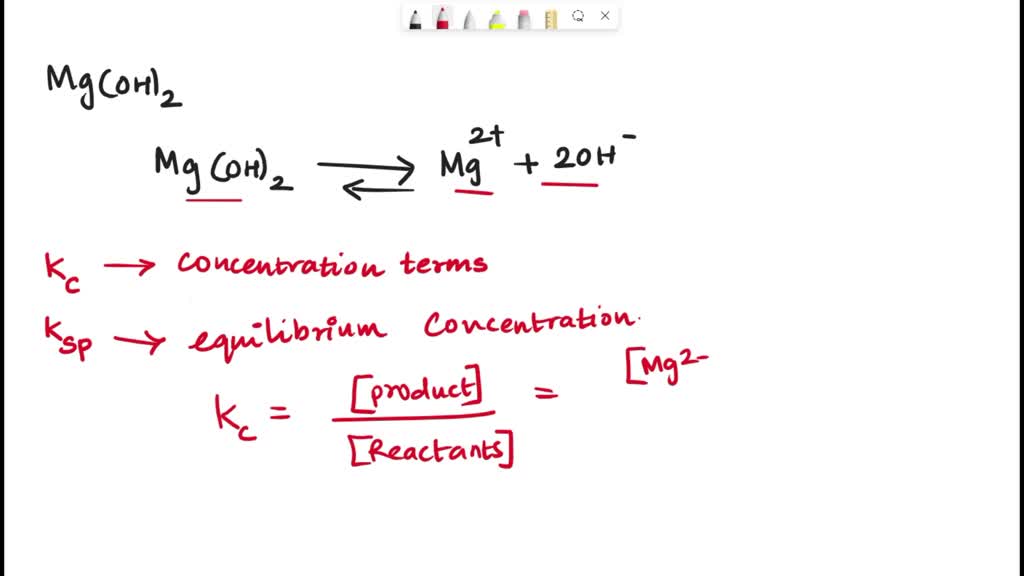 Mg(OH)₂
Mg(OH)₂ ⇌ Mg²⁺ + 2OH⁻
Kc → concentration terms
Ksp → equilibrium Concentration.
Kc = [product] / [Reactants] = [Mg²⁻